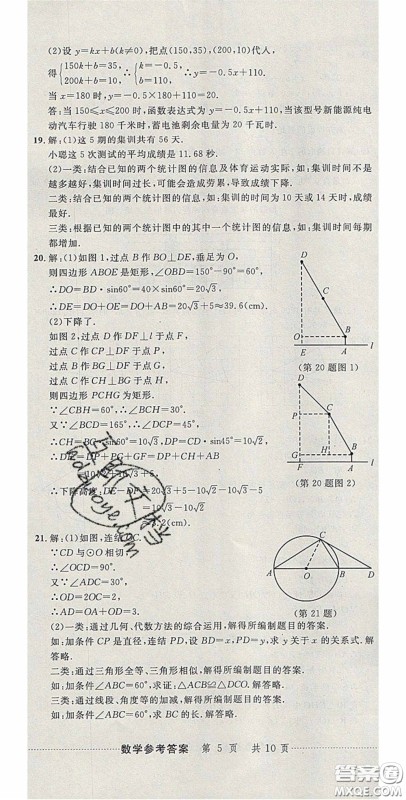 (2)设 y=kx+b(k≠0),把点(150,35),(200,10)代入,
得{150k+b=35, 200k+b=10. ∴{k=-0.5, b=110. ∴y=-0.5x+110.
当 x=180 时,y=-0.5×180+110=20.
答:当150≤x≤200时,函数表达式为 y=-0.5x+110,当该型号新能源纯电
动汽车行驶 180 千米时,蓄电池剩余电量为 20 千瓦时.
19.解:(1)这 5 期的集训共有 56 天.
小聪这 5 次测试的平均成绩是 11.68 秒.
(2)一类:结合已知的两个统计图的信息及体育运动实际,如:集训时间不是
越多越好,集训时间过长,可能会造成劳累,导致成绩下降.
二类:结合已知的两个统计图的信息,如:集训的时间为 10 天或 14 天时,成绩
最好.
三类:根据已知的两个统计图中的其中一个统计图的信息,如:集训时间每期
都增加.
20.解:(1)如图 1,过点 B 作 BO⊥DE,垂足为 O,
则四边形 ABOE 是矩形,∠OBD=150°-90°=60°,
∴DO=BD·sin60°=40×sin60°=20√3,
∴DE=DO+OE=DO+AB=20√3+5≈39.6(cm).
(2)下降了.
如图 2,过点 D 作 DF⊥l 于点 F,
过点 C 作 CP⊥DF 于点 P,
过点 B 作 BG⊥DF 于点 G,
过点 C 作 CH⊥BG 于点 H,
则四边形 PCHG 为矩形.
∵∠CBH=60°,∴∠BCH=30°.
又∵∠BCD=165°,∴∠DCP=45°,
∴CH=BC·sin60°=10√3,DP=CD·sin45°=10√2,
∴DF=DP+PG+GF=DP+CH+AB
=10√2+10√3+5,
∴下降高度:DE-DF=20√3+5-10√2-10√3-5
=10√3-10√2
D
C
O
B
E
A
l
(第 20 题图 1)
D
P
C
G
H
B
F
A
l
(第 20 题图 2)
21.解:(1)如图,连结OC.
∵CD 与⊙O 相切,
∴∠OCD=90°.
又∵∠ADC=30°,
∴OD=2OC=2,
∴AD=AO+OD=3.
C
A
O
B
D
(第 21 题)
(2)一类:通过几何、代数方法的综合运用,解得所编制题目的答案.
如:加条件 CP 是直径,连结 PD,设 BD=x,PD=y,求 y 关于 x 的关系式. 解
答略.
二类:通过三角形全等、三角形相似,解得所编制题目的答案.
如:加条件∠ABC=60°,求证:△ACB≌△DCO.解答略.
三类:通过线段、角度等的加减,解得所编制题目的答案.
如:加条件∠ABC=60°,求 BD 的长.解答略.
数学参考答案 第 5 页 共 10 页
答案圈
MXQE.COM